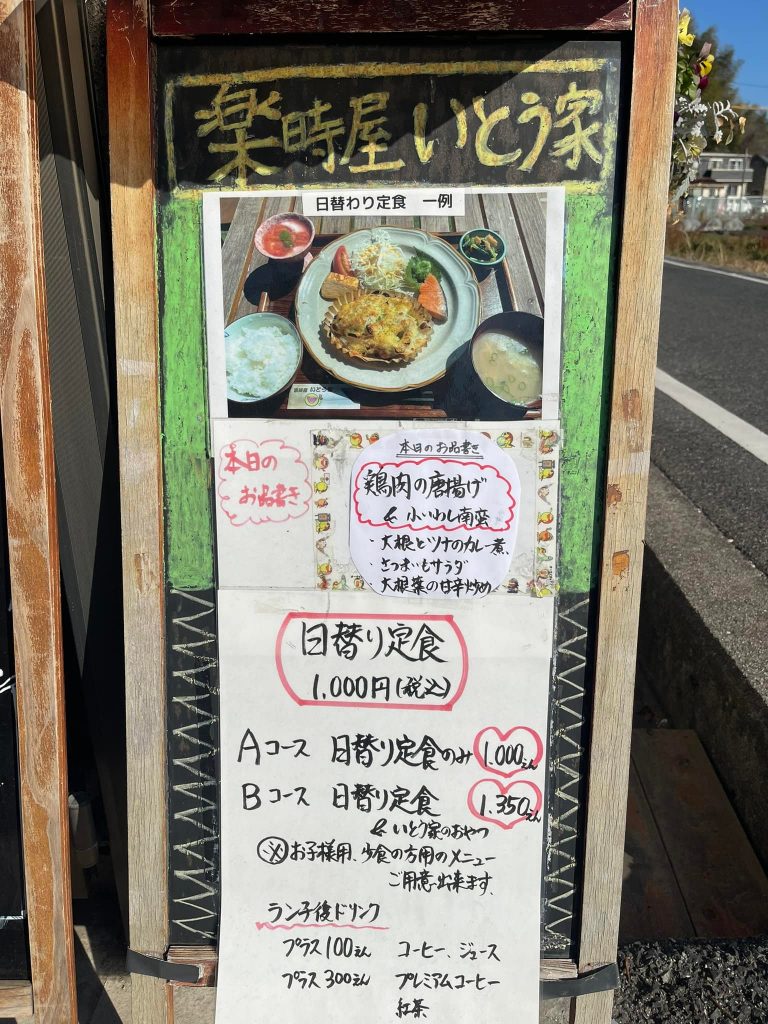 楽時屋 いとう家
日替わり定食 一例
いとう家
本日の
お品書き
本日のお品書き
鶏肉の唐揚げ
& 小いわし南蛮
・大根とツナのカレー煮、
・さつまいもサラダ
・大根葉の甘辛炒め
日替り定食
1,000円(税込)
Aコース 日替り定食のみ 1.000えん
Bコース 日替り定食 1.350えん
& いとう家のおやつ
※お子様用、少食の方用のメニュー
ご用意出来ます、
ランチ後ドリンク
プラス100えん コーヒー、ジュース
プラス300えん プレミアムコーヒー
紅茶